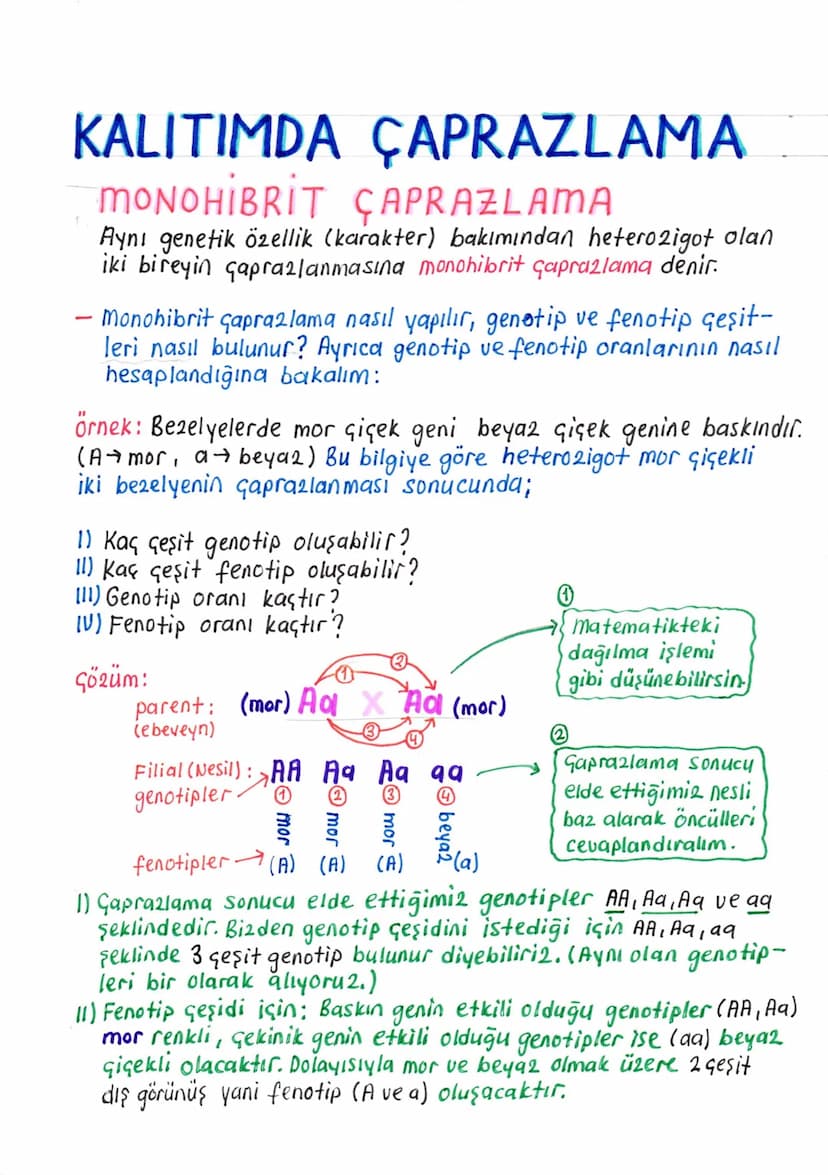 KALITIMDA ÇAPRAZLAMA
MONOHİBRİT ÇAPRAZLAMA
Aynı genetik özellik (karakter) bakımından heterozigot olan
iki bireyin çaprazlanmasına monohibrit çaprazlama denir.
– Monohibrit çaprazlama nasıl yapılır, genotip ve fenotip çeşit-
leri nasıl bulunur? Ayrıca genotip ve fenotip oranlarının nasıl
hesaplandığına bakalım:
Örnek: Bezelyelerde mor çiçek geni beyaz çiçek genine baskındır.
(A→mor, a→beyaz) Bu bilgiye göre heterozigot mor çiçekli
iki bezelyenin çaprazlanması sonucunda;
I) Kaç çeşit genotip oluşabilir?
II) Kaç çeşit fenotip oluşabilir?
III) Genotip oranı kaçtır?
IV) Fenotip oranı kaçtır?
①
Matematikteki
dağılma işlemi
gibi düşünebilirsin.
Çözüm:
① ②
parent: (mor) Aa X Aa (mor)
(ebeveyn)
③ ④
②
Çaprazlama sonucu
elde ettiğimiz nesli
baz alarak öncülleri
cevaplandıralım.
Filial (Nesil): AA Aa Aa aa
genotipler ① ② ③ ④
mor mor mor beyaz
fenotipler → (A) (A) (A) (a)
I) Çaprazlama sonucu elde ettiğimiz genotipler AA, Aa, Aa ve aa
şeklindedir. Bizden genotip çeşidini istediği için AA, Aa, aa
şeklinde 3 çeşit genotip bulunur diyebiliriz. (Aynı olan genotip-
leri bir olarak alıyoruz.)
II) Fenotip çeşidi için; Baskın genin etkili olduğu genotipler (AA, Aa)
mor renkli, çekinik genin etkili olduğu genotipler ise (aa) beyaz
çiçekli olacaktır. Dolayısıyla mor ve beyaz olmak üzere 2 çeşit
dış görünüş yani fenotip (A ve a) oluşacaktır.